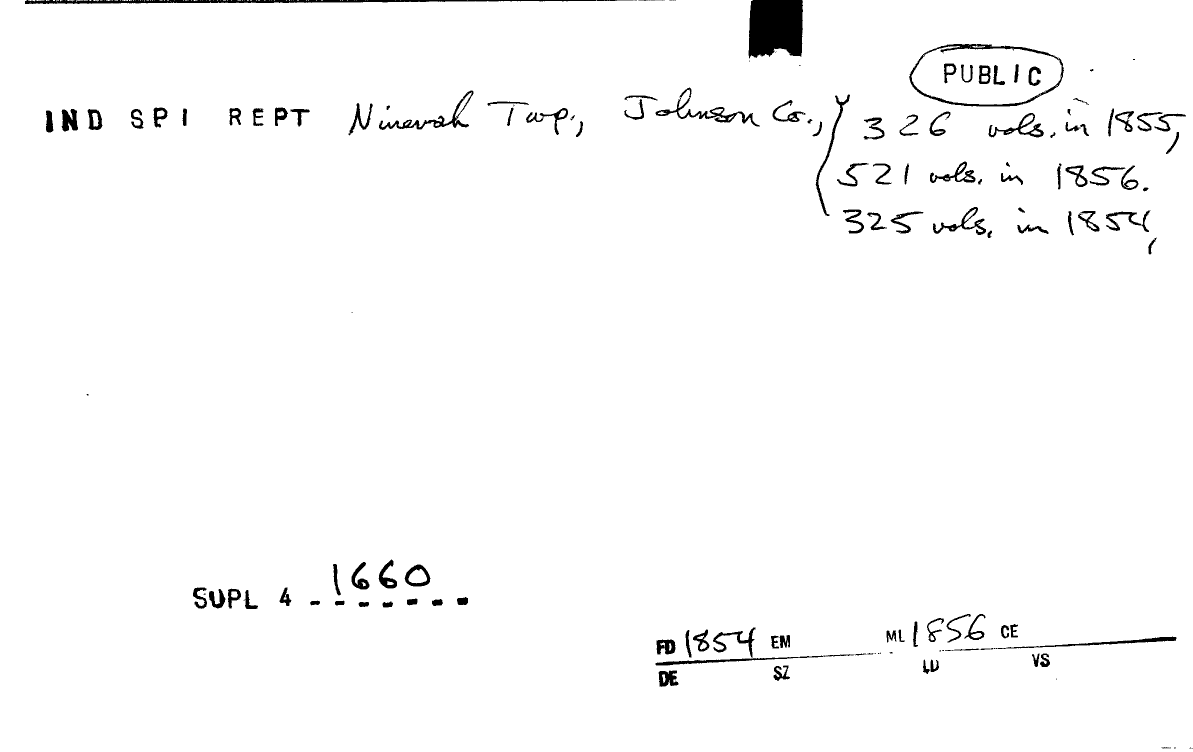 PUBLIC
IND SPI REPT Ninevah Twp., Johnson Co., 326 vols. in 1855,
521 vols. in 1856.
325 vols. in 1854,
SUPL 4 1660
FD 1854 EM ML 1856 CE
DE SZ LD VS